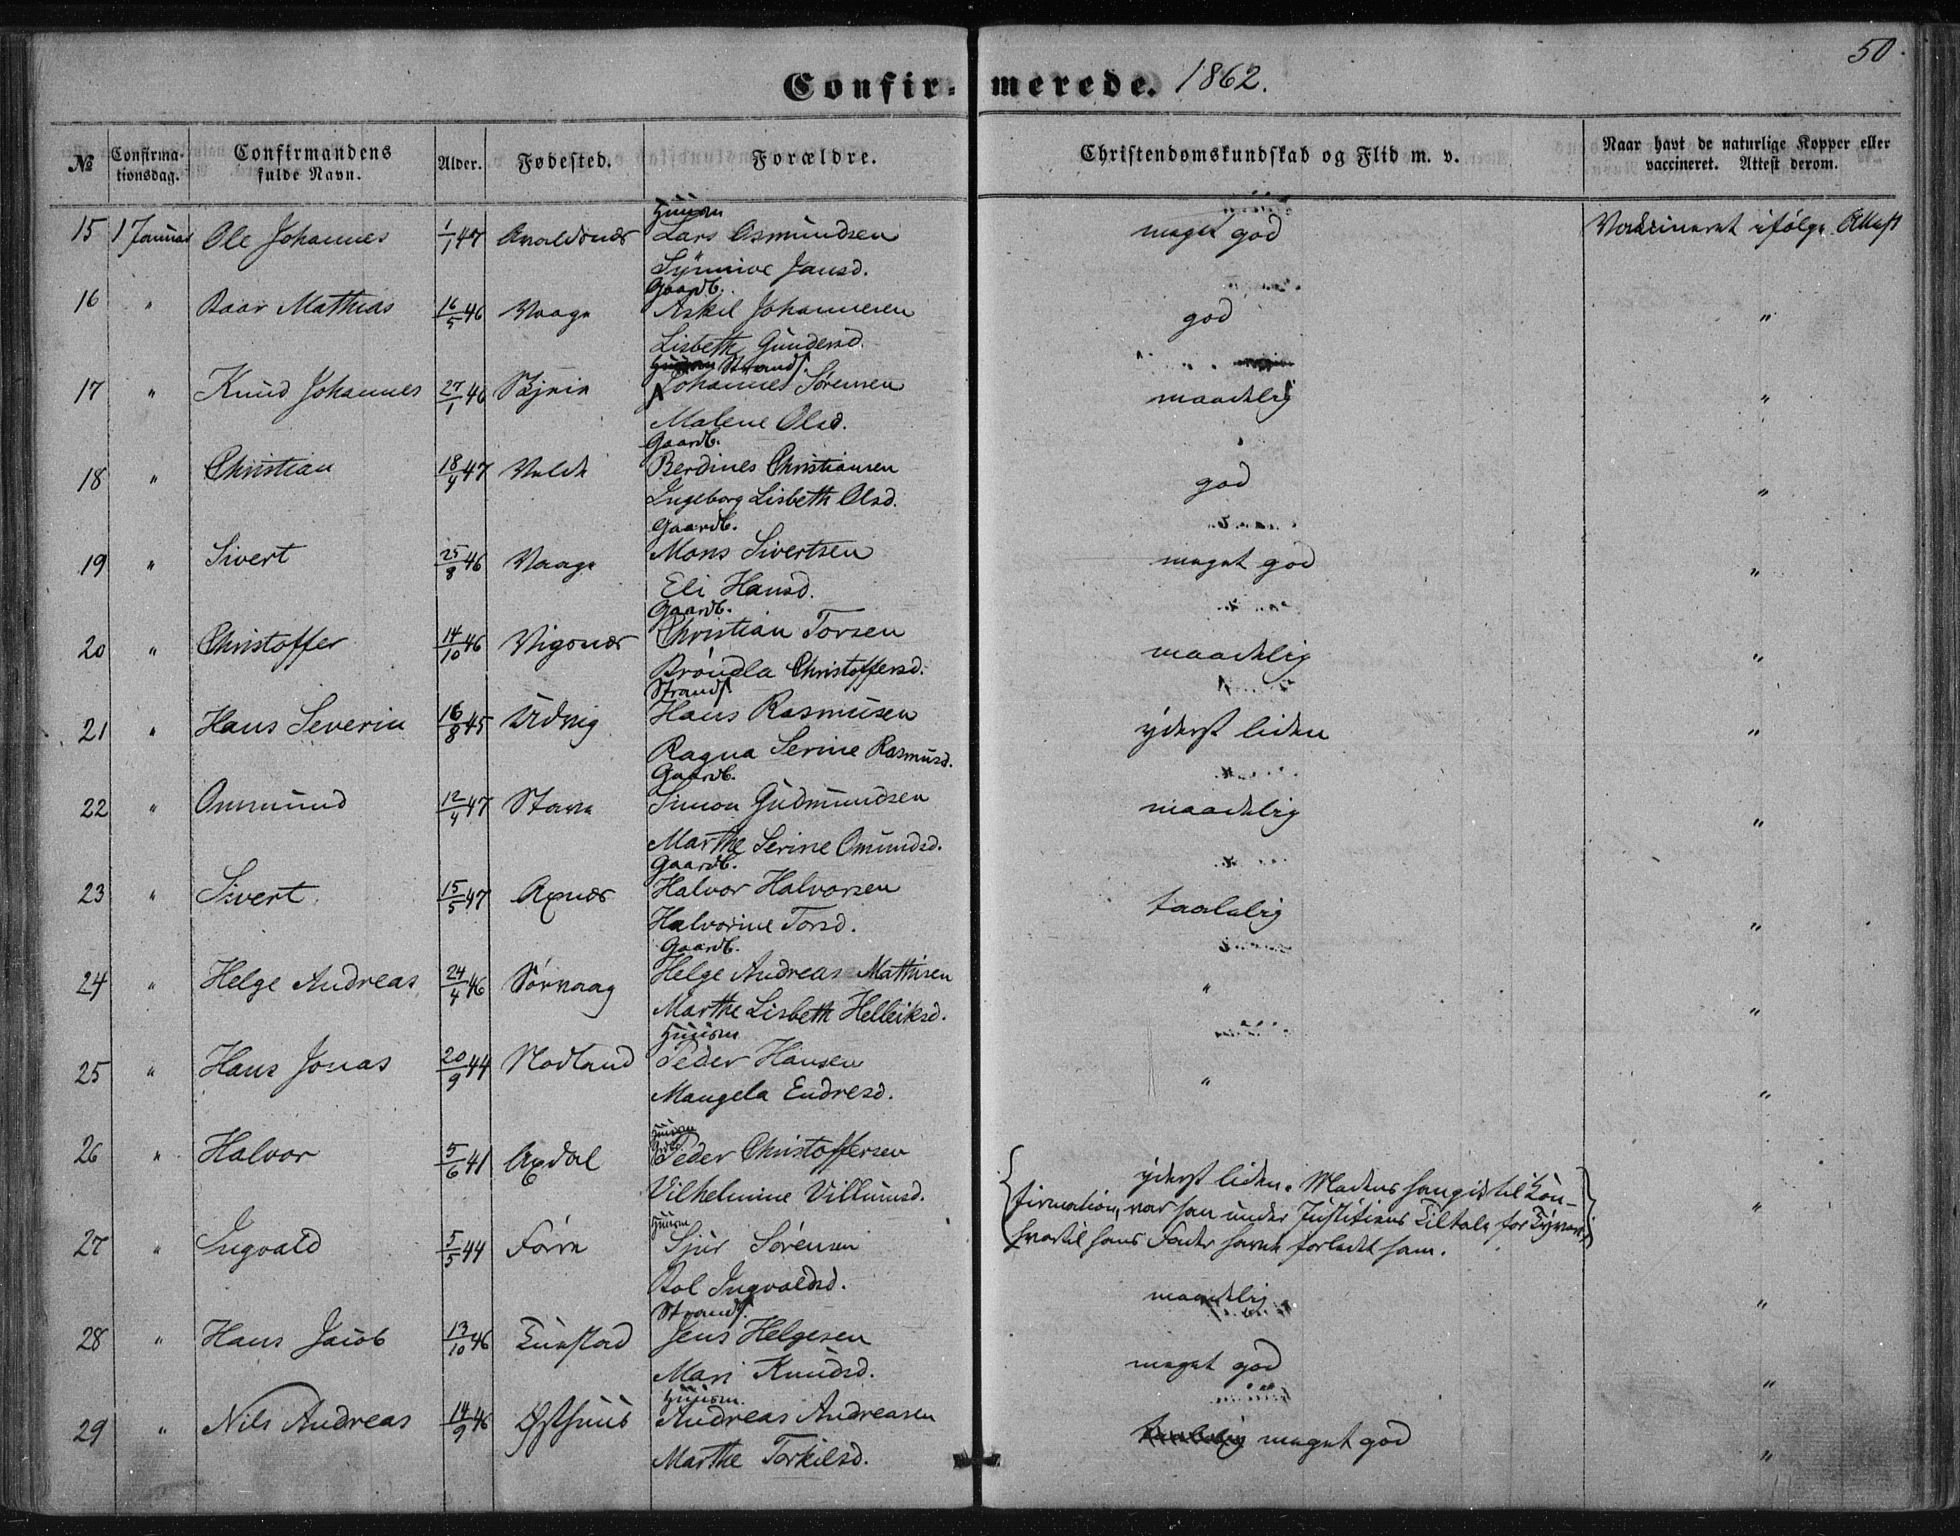 50.
Confirmerede. 1862.
№ Confirmationsdag. Confirmandens fulde Navn. Alder. Fødested. Forældre. Christendomskundskab og Flid m. v. Naar havt de naturlige Kopper eller vaccineret. Attest derom.
Huusm
15 1 Januar Ole Johannes 1/1 47 Avaldsnæs Lars Asmundsen meget god Vaccineret ifølge Attest
Synnive Jansd.
Gaardb.
16 " Baar Mathias 16/5 46 Vaage Askil Johannesen god "
Lisbeth Gundersd.
Huusm Strands.
17 " Knud Johannes 27/1 46 Johannes Sørensen maadelig "
Malene Olsd.
Gaardb.
18 " Christian 18/4 47 Valde Berdines Christiansen god "
Ingeborg Lisbeth Olsd.
Gaardb.
19 " Sivert 25/8 46 Vaage Mons Sivertsen meget god "
Eli Hansd.
Gaardb.
20 " Christoffer 14/10 46 Vigsnæs Christian Torsen maadelig "
Brøndla Christoffersd.
Strands.
21 " Hans Severin 16/8 45 Udvig Hans Rasmusen yderst liden "
Ragna Serine Rasmusd.
Gaardb.
22 " Onmund 12/4 47 Stava Simon Gudmundsen maadelig "
Marthe Serine Omundsd.
Gaardb.
23 " Sivert 15/5 47 Axnæs Halvor Halvorsen taalelig "
Halvorine Torsd.
Gaardb.
24 " Helge Andreas 24/4 46 Sørvaag Helge Andreas Mathisen " "
Marthe Lisbeth Helleiksd.
Huusm
25 " Hans Jonas 20/9 44 Nodland Peder Hansen " "
Mangela Endresd.
Huusm
Grdb
26 " Halvor 5/6 41 Axdal Peder Christoffersen yderst liden. Medens han gik til Con- "
Vilhelmine Villumsd. firmation, var han under Justitiens Tiltale for Tyveri,
Huusm
27 " Ingvald 5/5 44 Førre Sjur Sørensen hvortil hans Fader havde forledet ham.
Bol Ingvaldsd. maadelig "
Strands.
28 " Hans Jacob 13/10 46 Tuastad Jens Helgesen meget god "
Mari Knudsd.
Huusm.
29 " Nils Andreas 14/9 46 Østhuus Andreas Andreasen taalelig meget god "
Marthe Torkilsd.